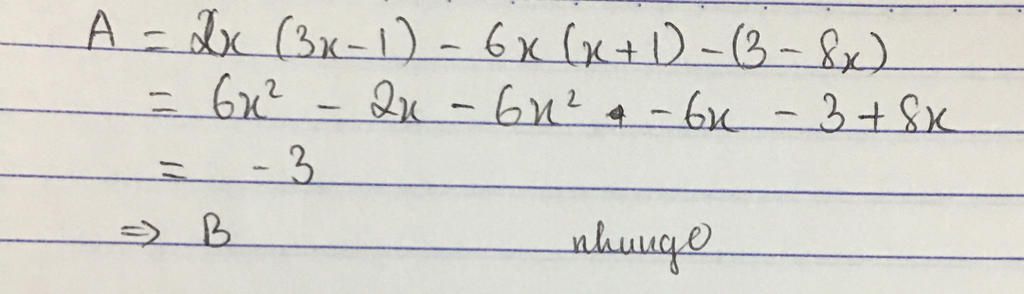 A = 2x (3x - 1) - 6x (x + 1) - (3 - 8x)
= 6x² - 2x - 6x² - 6x - 3 + 8x
= - 3
⇒ B nhungo